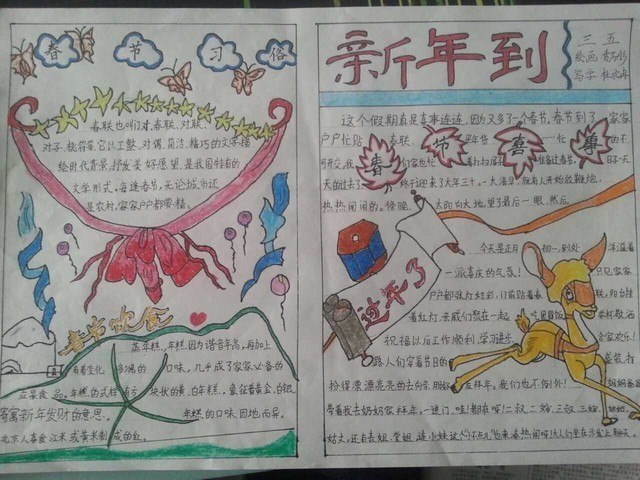 春节习俗
春联也叫门对、春贴、对联、
对子、桃符等,它以工整、对偶、简洁、精巧的文字描
绘时代背景,抒发美好愿望,是我国特有的
文学形式。每逢春节,无论城市还
是农村,家家户户都要
春节饮食
蒸年糕,年糕因为谐音年高,再加上
有着变化多端的口味,几乎成了家家必备的
应景食品。年糕的式样有方块状的黄、白年糕,象征着黄金、白银,
寄寓新年发财的意思。年糕的口味因地而异。
北京人喜食江米或黄米制成的红
新年到
三 五
绘画
写字
这个假期真是喜事连连,因为又多了一个春节,春节到了,家家
户户忙贴春联
春节喜事
天的过去了,终于迎来了大年三十。一大清早,就有人开始放鞭炮,
热热闹闹的。傍晚,太阳向大地望了最后一眼,然后
过年了
今天是正月初一,到处洋溢着
一派喜庆的气氛!只见家家
户户都张灯结彩,门前贴着春联,阳台挂
着红灯。亲戚们聚在一起吃团圆饭,举杯敬酒
祝福以后工作顺利,学习进步
路人们穿着节日的盛装,在
捡得漂漂亮亮的去向亲朋好友拜年。我们也不例外!妈妈
带着我去奶奶家拜年,一进门,哇!都在呀!二叔、二婶、三叔、三婶、姑姑、
姑丈,还有表姐、堂姐